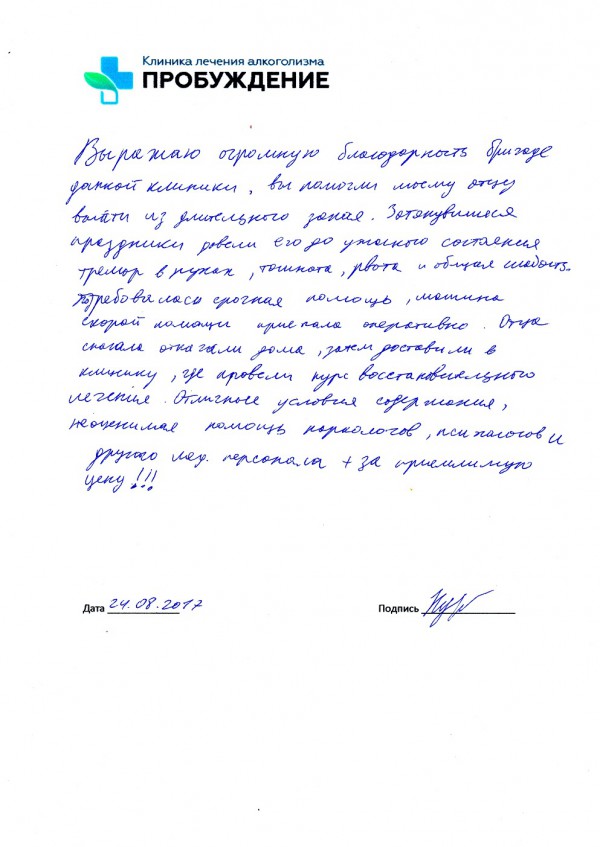 Клиника лечения алкоголизма
ПРОБУЖДЕНИЕ
Выражаю огромную благодарность бригаде
данной клиники, вы помогли моему отцу
выйти из длительного запая. Затянувшиеся
праздники довели его до ужасного состаения
тремор в руках, тошнота, рвота и общая слабость.
Потребовалась срочная помощь, машина
скорой помощи приехала оперативно. Отца
сначала откачали дома, затем доставили в
клинику, где провели курс восстановительного
лечения. Отличные условия содержания,
неоценимая помощь наркологов, психологов и
другого мед. персонала + за приемлимую
цену!!!
Дата 24.08.2017
Подпись